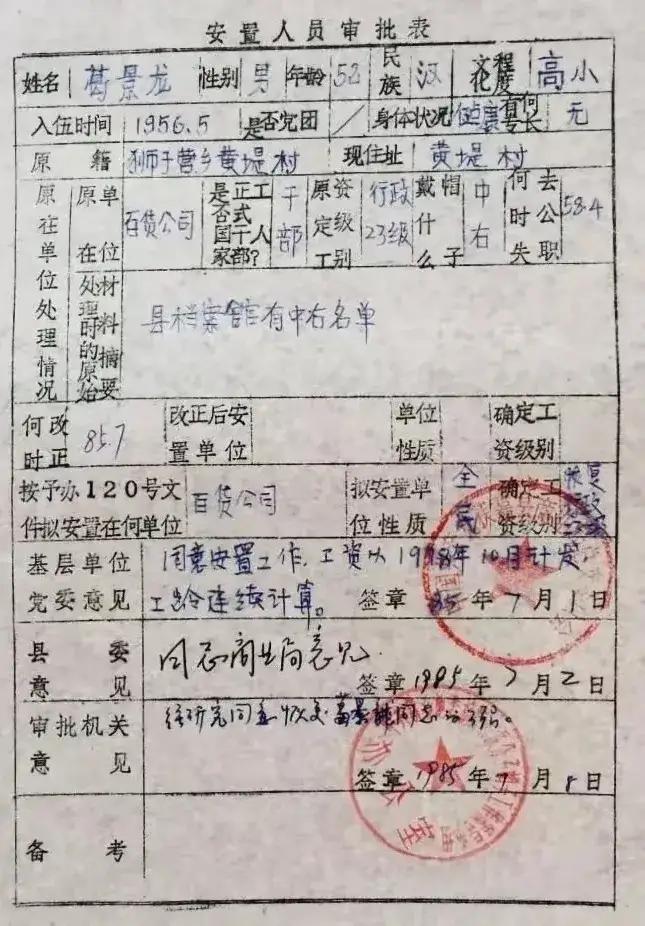 安置人员审批表
姓名 葛景龙 性别 男 年龄 52 民族 汉 文化程度 高小
入伍时间 1956.5 是否党团 / 身体状况 健康 有何专长 无
原籍 狮子营乡黄堤村 现住址 黄堤村
原在单位处理情况 原单位 在 百货公司 是否正式国家工人干部? 干部 原定资级工别 行政23级 戴什么帽子 中右 何时失去公职 58.4
处理时的原始材料摘要 县档案馆有中右名单
何时改正 85.7 改正后安置单位 单位性质 确定工资级别
按予办120号文件拟安置在何单位 百货公司 拟安置单位性质 全民 确定工资级别 恢复
基层单位党委意见 同意安置工作,工资从1978年10月计发
工龄连续计算。 签章 85年7月1日
县委意见 同意商业局意见.
签章 1985年7月2日
审批机关意见 经研究同意恢复葛景龙同志公职。
签章 1985年7月8日
备考
办公室